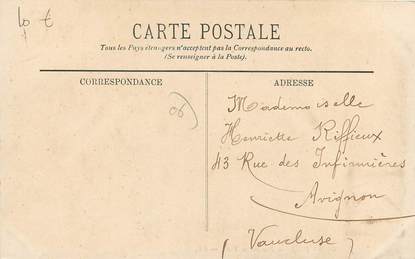 10 €
CARTE POSTALE
Tous les Pays étrangers n'acceptent pas la Correspondance au recto.
(Se renseigner à la Poste).
CORRESPONDANCE
ADRESSE
06
Mademoiselle
Henriette Riffieux
43 Rue des Infirmières
Avignon
(Vaucluse)